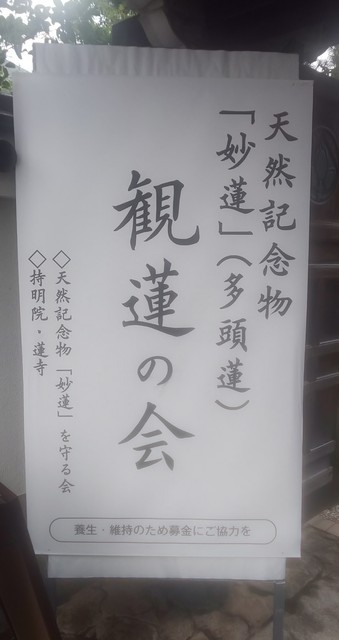 天然記念物
「妙蓮」（多頭蓮）
観蓮の会
◇天然記念物「妙蓮」を守る会
◇持明院・蓮寺
養生・維持のため募金にご協力を